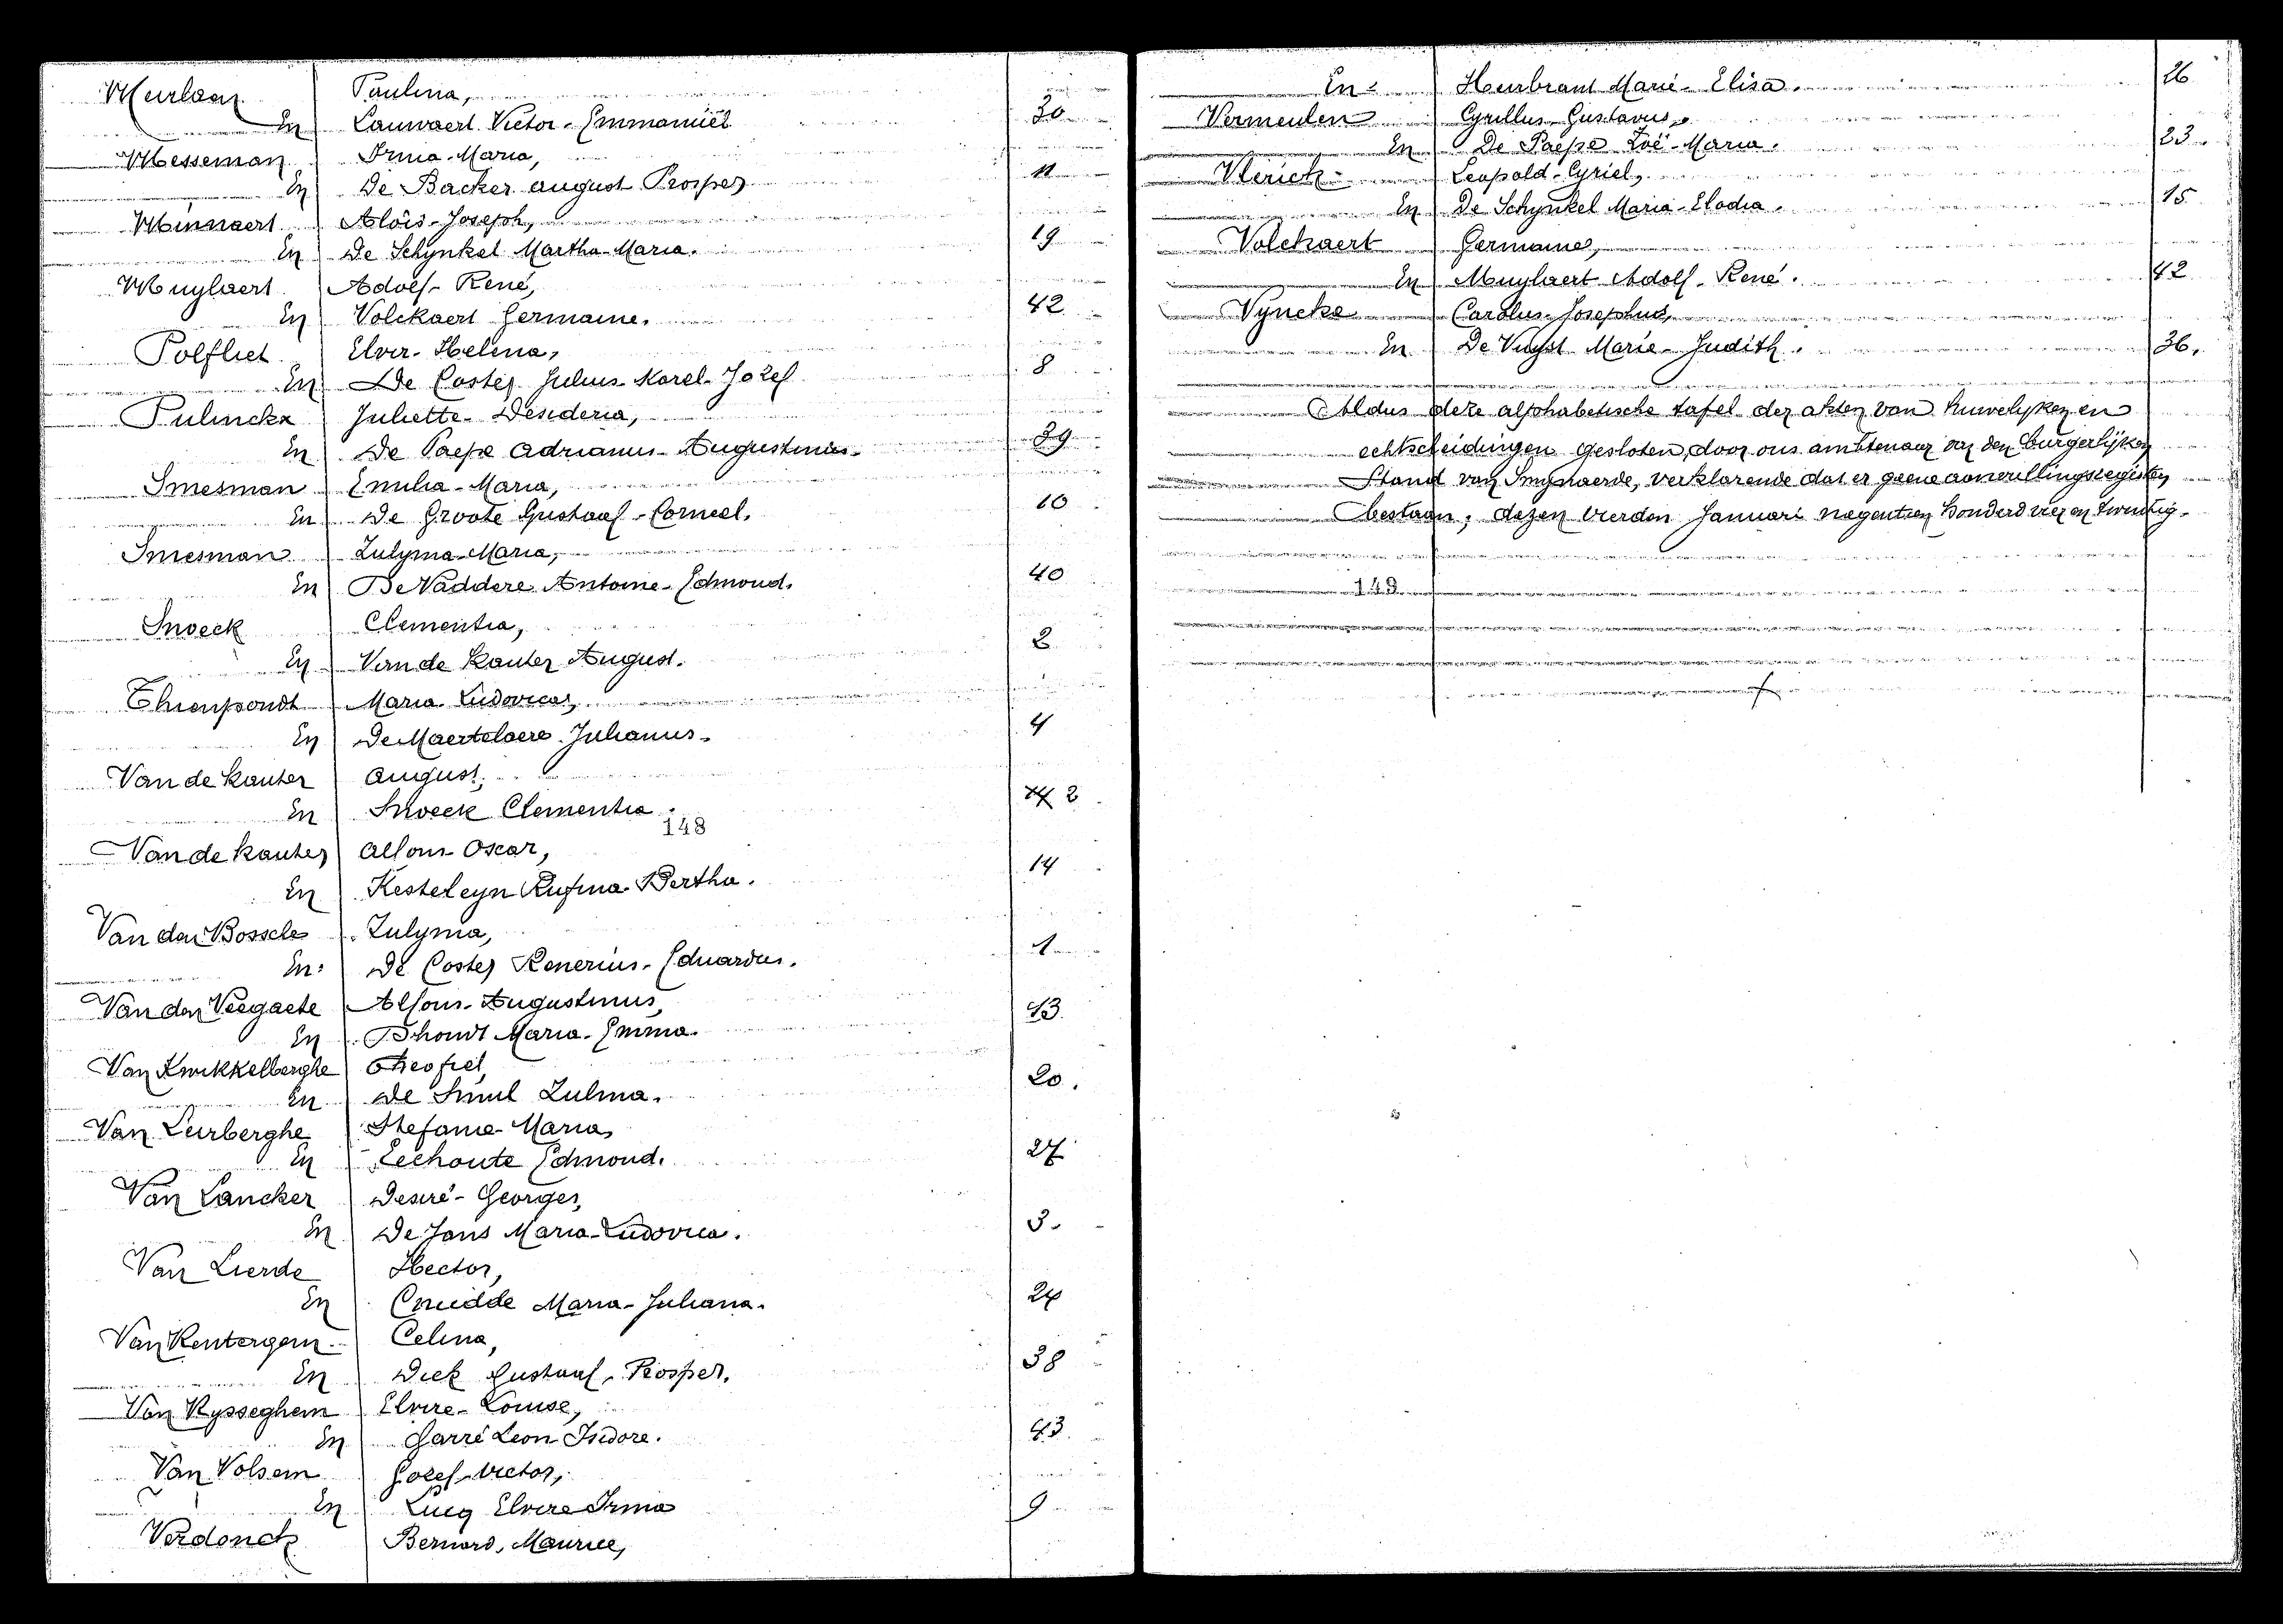 Meerlaen Paulina,
En Lauwaert Victor-Emmanuël 30
Messeman Irma-Maria,
En De Backer August Prosper 11
Minnaert Aloïs-Joseph,
En De Schynkel Martha-Maria. 19
Muylaert Adolf-René,
En Volckaert Germaine. 42
Polfliet Elvir-Helena,
En De Coster Julius-Karel-Jozef 8
Pulinckx Juliette-Desideria,
En De Paepe Adrianus-Augustinus. 39
Smesman Emilia-Maria,
En De Groote Gustaaf-Corneel. 10
Smesman Zulyma-Maria,
En De Vaddere Antoine-Edmond. 40
Snoeck Clementia,
En Van de Kauter August. 2
Thienpondt Maria Ludovica,
En De Maertelaere Julianus. 4
Van de Kauter August,
En Snoeck Clementia. 2
148
Van de Kauter Alfons Oscar,
En Kesteleyn Rufina-Bertha. 14
Van den Bossche Zulyma,
En De Coster Renerius-Eduardus. 1
Van den Veegaete Alfons-Augustinus,
En Dhondt Maria-Emma. 43
Van Kwikkelberghe Theofiel,
En De Smul Zulma. 20.
Van Leirberghe Stefanie-Maria,
En Lechoute Edmond. 27
Van Lancker Desiré-Georges,
En De Jans Maria-Ludovica. 3.
Van Lierde Hector,
En Cnudde Maria-Juliana. 24
Van Rentergem Celina,
En Dick Gustaaf-Prosper. 38
Van Rysseghem Elvire-Louise,
En Garré Leon Isidore. 43.
Van Volsem Jozef-Victor,
En Lucq Elvire Irma 9
Verdonck Bernard, Maurice,
En Heirbrant Marie-Elisa. 26
Vermeulen Cyrillus-Gustavus,
En De Paepe Zoë-Maria. 23
Vlerick Leopold-Cyriel,
En De Schynkel Maria-Elodia. 15
Volckaert Germaine,
En Muylaert Adolf-René. 42
Vyncke Carolus-Josephus,
En De Vuyst Marie-Judith. 36.
Aldus deze alphabetische tafel der akten van huwelijken en
echtscheidingen gesloten, door ons ambtenaar van den burgerlijken
Stand van Smynaerde, verklarende dat er geene aanvullingsregisters
bestaan, dezen vierden Januari negentien honderd vier en twintig.
149